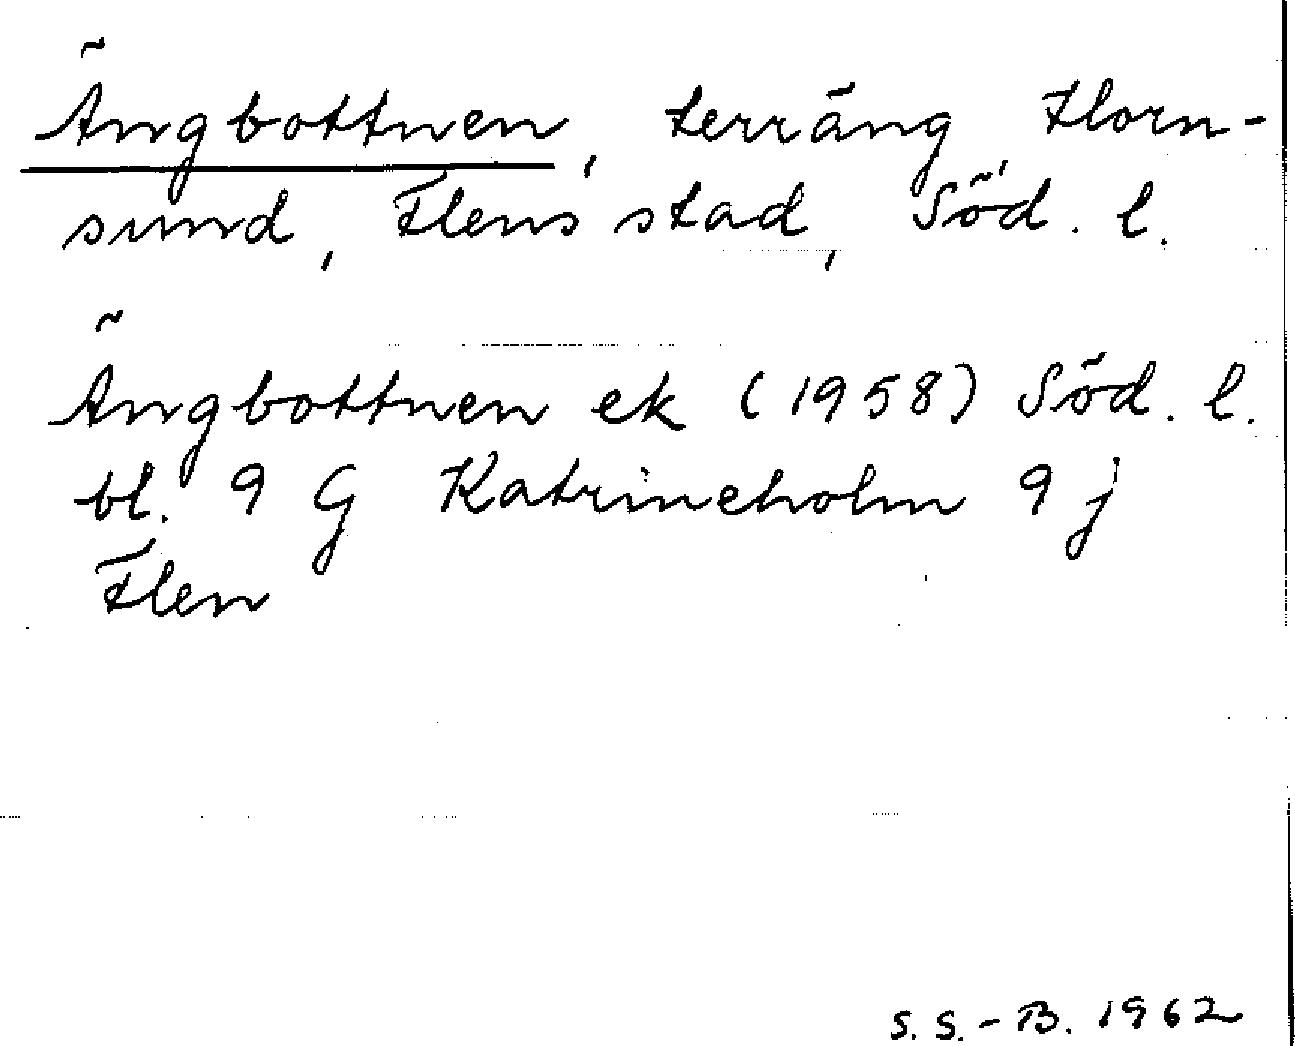 Ängbottnen, terräng, Horn-
sund, Flens stad, Söd. l.
Ängbottnen ek (1958) Söd. l.
bl. 9 G Katrineholm 9 j
Flen
S. S.-B. 1962